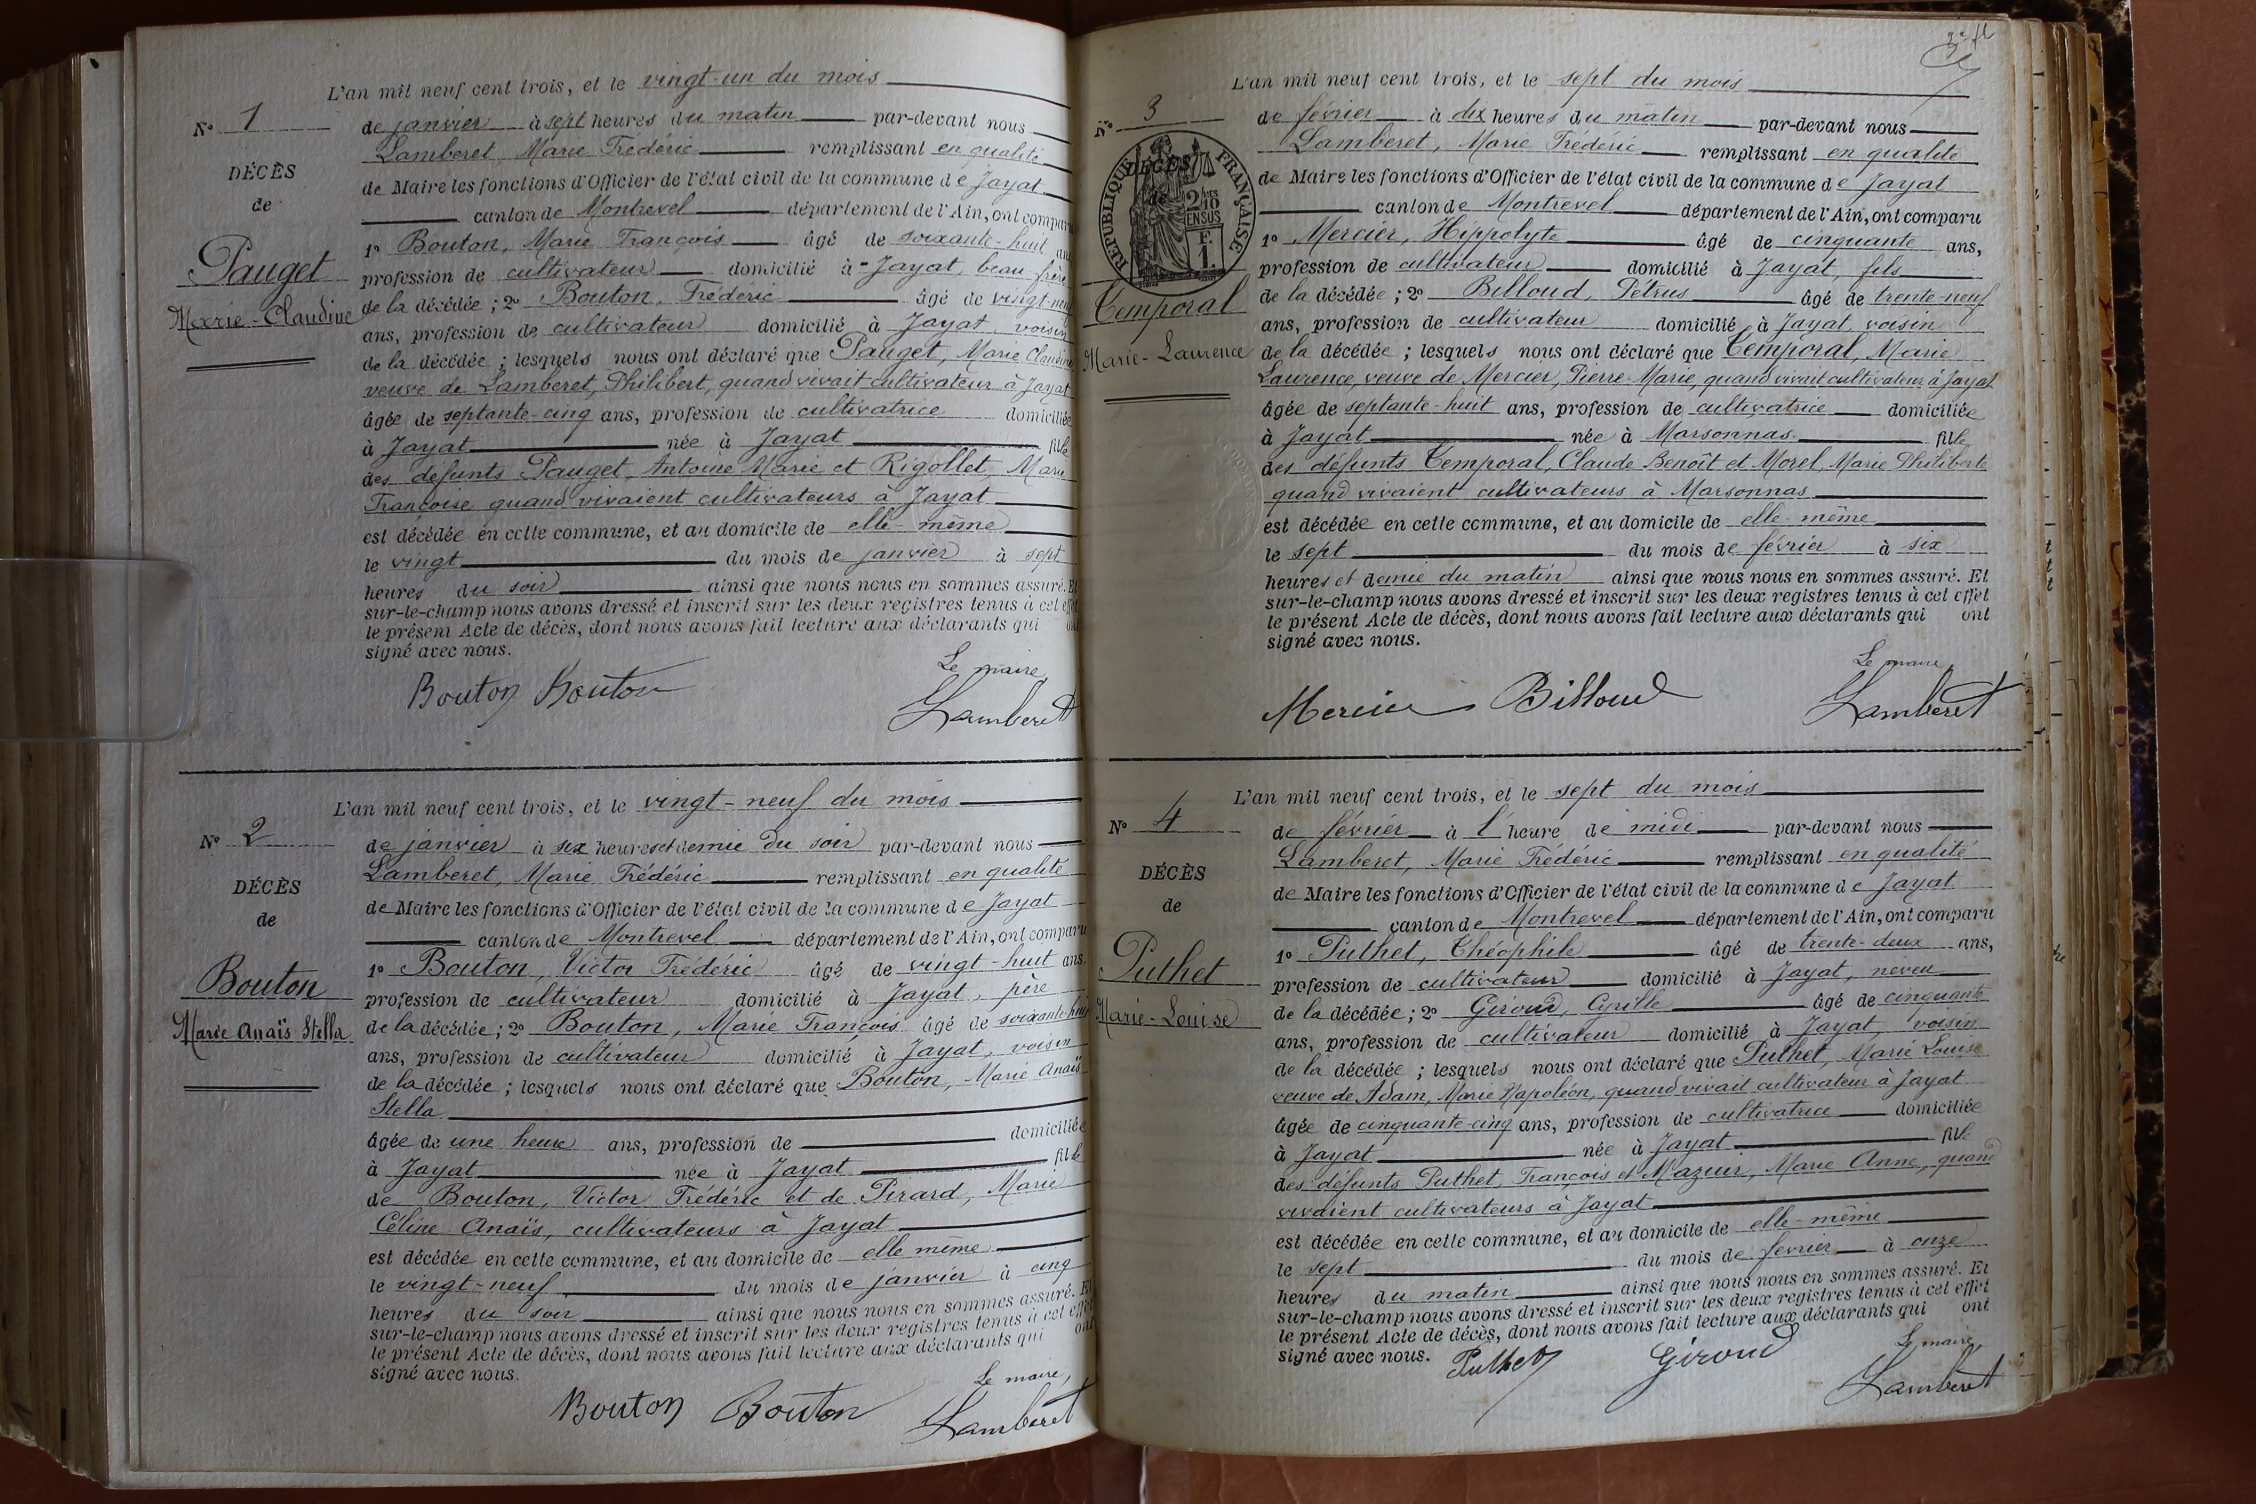 L'an mil neuf cent trois, et le vingt-un du mois
N° 1
de janvier à sept heures du matin par-devant nous
Lamberet, Marie Frédéric remplissant en qualité
DÉCÈS
de Maire les fonctions d'Officier de l'état civil de la commune de Jayat
de
canton de Montrevel département de l'Ain, ont comparu
1° Bouton, Marie François âgé de soixante-huit ans
Pauget
profession de cultivateur domicilié à Jayat, beau-frère
Marie-Claudine
de la décédée ; 2° Bouton, Frédéric âgé de vingt-neuf
ans, profession de cultivateur domicilié à Jayat, voisin
de la décédée ; lesquels nous ont déclaré que Pauget, Marie Claudine
veuve de Lamberet, Philibert, quand vivait cultivateur à Jayat
âgée de septante-cinq ans, profession de cultivatrice domiciliée
à Jayat née à Jayat fille
des défunts Pauget, Antoine Marie et Rigollet, Marie
Françoise quand vivaient cultivateurs à Jayat
est décédée en cette commune, et au domicile de elle-même
le vingt du mois de janvier à sept
heures du soir ainsi que nous nous en sommes assuré. Et
sur-le-champ nous avons dressé et inscrit sur les deux registres tenus à cet effet
le présent Acte de décès, dont nous avons fait lecture aux déclarants qui ont
signé avec nous.
Le maire,
Bouton Bouton Lamberet
L'an mil neuf cent trois, et le vingt-neuf du mois
N° 2
de janvier à six heures et demie du soir par-devant nous
Lamberet, Marie Frédéric remplissant en qualité
DÉCÈS
de Maire les fonctions d'Officier de l'état civil de la commune de Jayat
de
canton de Montrevel département de l'Ain, ont comparu
1° Bouton, Victor Frédéric âgé de vingt-huit ans,
Bouton
profession de cultivateur domicilié à Jayat, père
Marie Anaïs Stella
de la décédée ; 2° Bouton, Marie François âgé de soixante-huit
ans, profession de cultivateur domicilié à Jayat, voisin
de la décédée ; lesquels nous ont déclaré que Bouton, Marie Anaïs
Stella
âgée de une heure ans, profession de domiciliée
à Jayat née à Jayat fille
de Bouton, Victor Frédéric et de Pirard, Marie
Céline Anaïs, cultivateurs à Jayat
est décédée en cette commune, et au domicile de elle même
le vingt-neuf du mois de janvier à cinq
heures du soir ainsi que nous nous en sommes assuré. Et
sur-le-champ nous avons dressé et inscrit sur les deux registres tenus à cet effet
le présent Acte de décès, dont nous avons fait lecture aux déclarants qui ont
signé avec nous.
Le maire,
Bouton Bouton Lamberet
L'an mil neuf cent trois, et le sept du mois
N° 3
de février à dix heures du matin par-devant nous
Lamberet, Marie Frédéric remplissant en qualité
DÉCÈS
RÉPUBLIQUE FRANÇAISE
2/10 EN SUS
F. 1.
de Maire les fonctions d'Officier de l'état civil de la commune de Jayat
de
canton de Montrevel département de l'Ain, ont comparu
1° Mercier, Hippolyte âgé de cinquante ans,
profession de cultivateur domicilié à Jayat, fils
Temporal
de la décédée ; 2° Billoud, Pétrus âgé de trente-neuf
ans, profession de cultivateur domicilié à Jayat, voisin
Marie-Laurence
de la décédée ; lesquels nous ont déclaré que Temporal, Marie
Laurence, veuve de Mercier, Pierre-Marie, quand vivait cultivateur à Jayat
âgée de septante-huit ans, profession de cultivatrice domiciliée
à Jayat née à Marsonnas fille
des défunts Temporal, Claude Benoît et Morel, Marie Philiberte
quand vivaient cultivateurs à Marsonnas
est décédée en cette commune, et au domicile de elle-même
le sept du mois de février à six
heures et demie du matin ainsi que nous nous en sommes assuré. Et
sur-le-champ nous avons dressé et inscrit sur les deux registres tenus à cet effet
le présent Acte de décès, dont nous avons fait lecture aux déclarants qui ont
signé avec nous.
Le maire,
Mercier Billoud Lamberet
L'an mil neuf cent trois, et le sept du mois
N° 4
de février à l'heure de midi par-devant nous
Lamberet, Marie Frédéric remplissant en qualité
DÉCÈS
de Maire les fonctions d'Officier de l'état civil de la commune de Jayat
de
canton de Montrevel département de l'Ain, ont comparu
1° Puthet, Théophile âgé de trente-deux ans,
Puthet
profession de cultivateur domicilié à Jayat, neveu
Marie-Louise
de la décédée ; 2° Giroud, Cyrille âgé de cinquante
ans, profession de cultivateur domicilié à Jayat, voisin
de la décédée ; lesquels nous ont déclaré que Puthet, Marie Louise
veuve de Adam, Marie Napoléon, quand vivait cultivateur à Jayat
âgée de cinquante-cinq ans, profession de cultivatrice domiciliée
à Jayat née à Jayat fille
des défunts Puthet, François et Mazuir, Marie Anne, quand
vivaient cultivateurs à Jayat
est décédée en cette commune, et au domicile de elle-même
le sept du mois de février à onze
heures du matin ainsi que nous nous en sommes assuré. Et
sur-le-champ nous avons dressé et inscrit sur les deux registres tenus à cet effet
le présent Acte de décès, dont nous avons fait lecture aux déclarants qui ont
signé avec nous.
Le maire,
Puthet Giroud Lamberet